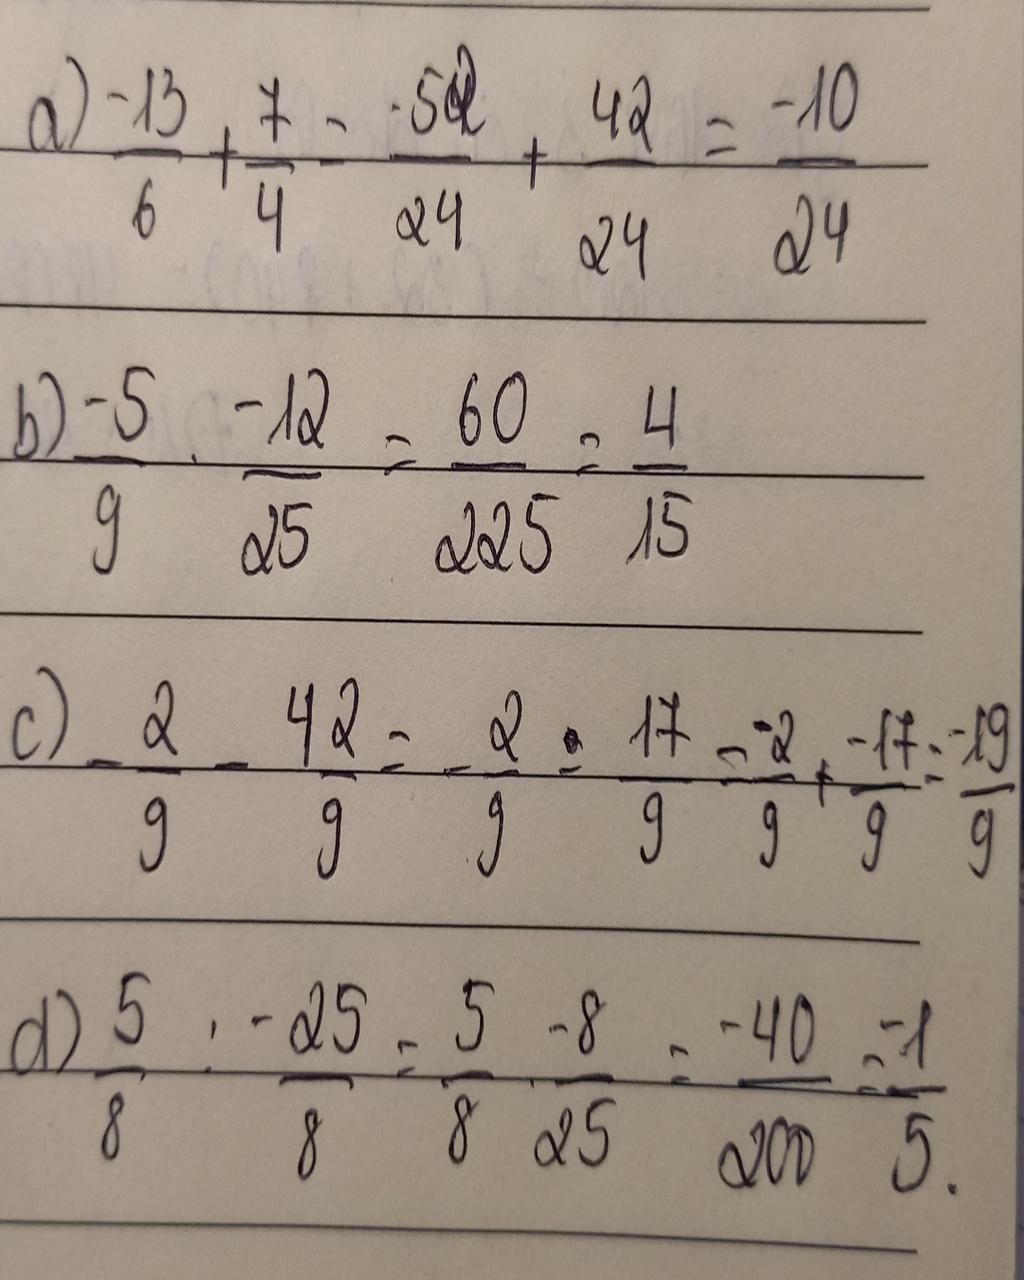 a) -13/6 + 7/4 = -52/24 + 42/24 = -10/24
b) -5/9 · -12/25 = 60/225 = 4/15
c) - 2/9 - 42/9 = - 2/9 - 17/9 = -2/9 + -17/9 = -19/9
d) 5/8 : -25/8 = 5/8 · -8/25 = -40/200 = -1/5.